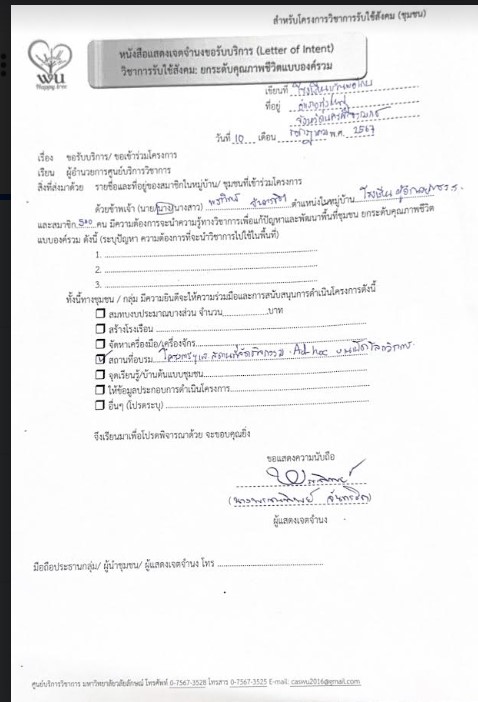 สำหรับโครงการวิชาการรับใช้สังคม (ชุมชน)
wu
หนังสือแสดงเจตจำนงขอรับบริการ (Letter of Intent)
วิชาการรับใช้สังคม: ยกระดับคุณภาพชีวิตแบบองค์รวม
เขียนที่
ที่อยู่
วันที่ 10 เดือน พ.ศ. 2567
เรื่อง ขอรับบริการ/ ขอเข้าร่วมโครงการ
เรียน ผู้อำนวยการศูนย์บริการวิชาการ
สิ่งที่ส่งมาด้วย รายชื่อและที่อยู่ของสมาชิกในหมู่บ้าน/ ชุมชนที่เข้าร่วมโครงการ
ด้วยข้าพเจ้า (นาย/นาง/นางสาว) ตำแหน่งในหมู่บ้าน
และสมาชิก 500 คน มีความต้องการจะนำความรู้ทางวิชาการเพื่อแก้ปัญหาและพัฒนาพื้นที่ชุมชน ยกระดับคุณภาพชีวิต
แบบองค์รวม ดังนี้ (ระบุปัญหา ความต้องการที่จะนำวิชาการไปใช้ในพื้นที่)
1.
2.
3.
ทั้งนี้ทางชุมชน / กลุ่ม มีความยินดีจะให้ความร่วมมือและการสนับสนุนการดำเนินโครงการดังนี้
สมทบงบประมาณบางส่วน จำนวน บาท
สร้างโรงเรือน
จัดหาเครื่องมือ/เครื่องจักร
สถานที่อบรม Ad-hoc
จุดเรียนรู้/บ้านต้นแบบชุมชน
ให้ข้อมูลประกอบการดำเนินโครงการ
อื่นๆ (โปรดระบุ)
จึงเรียนมาเพื่อโปรดพิจารณาด้วย จะขอบคุณยิ่ง
ขอแสดงความนับถือ
ผู้แสดงเจตจำนง
มือถือประธานกลุ่ม/ ผู้นำชุมชน/ ผู้แสดงเจตจำนง โทร
ศูนย์บริการวิชาการ มหาวิทยาลัยวลัยลักษณ์ โทรศัพท์ 0-7567-3528 โทรสาร 0-7567-3525 E-mail: caswu2016@gmail.com